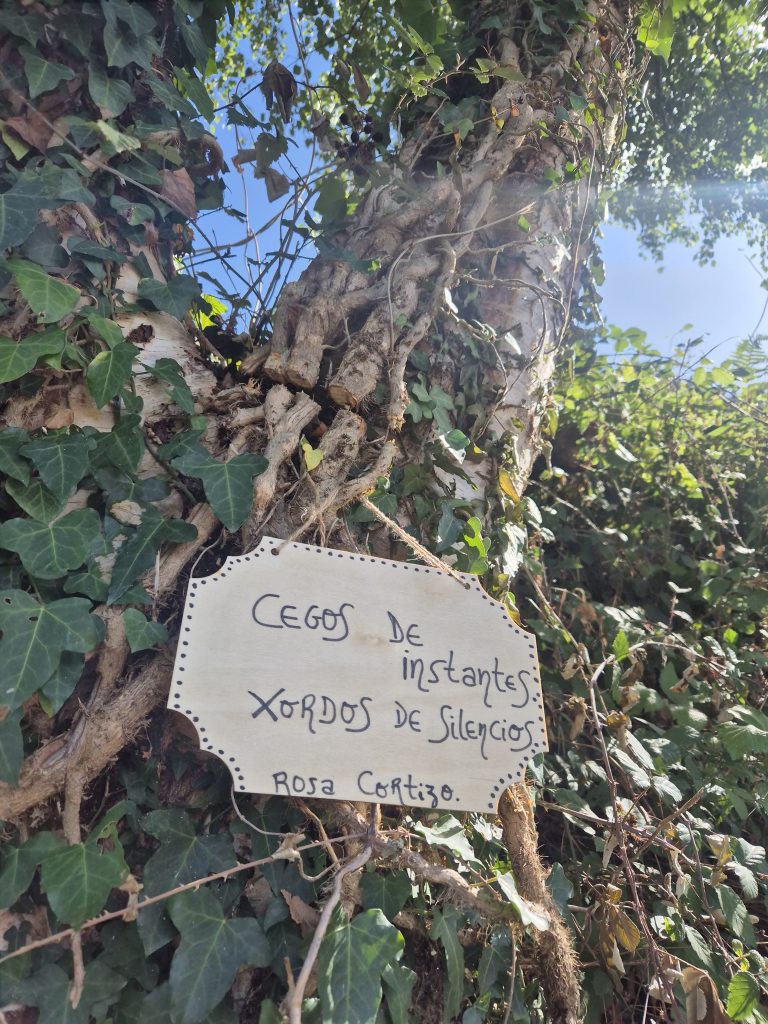 CEGOS DE
instantes.
XORDOS DE Silencios.
Rosa Cortizo.